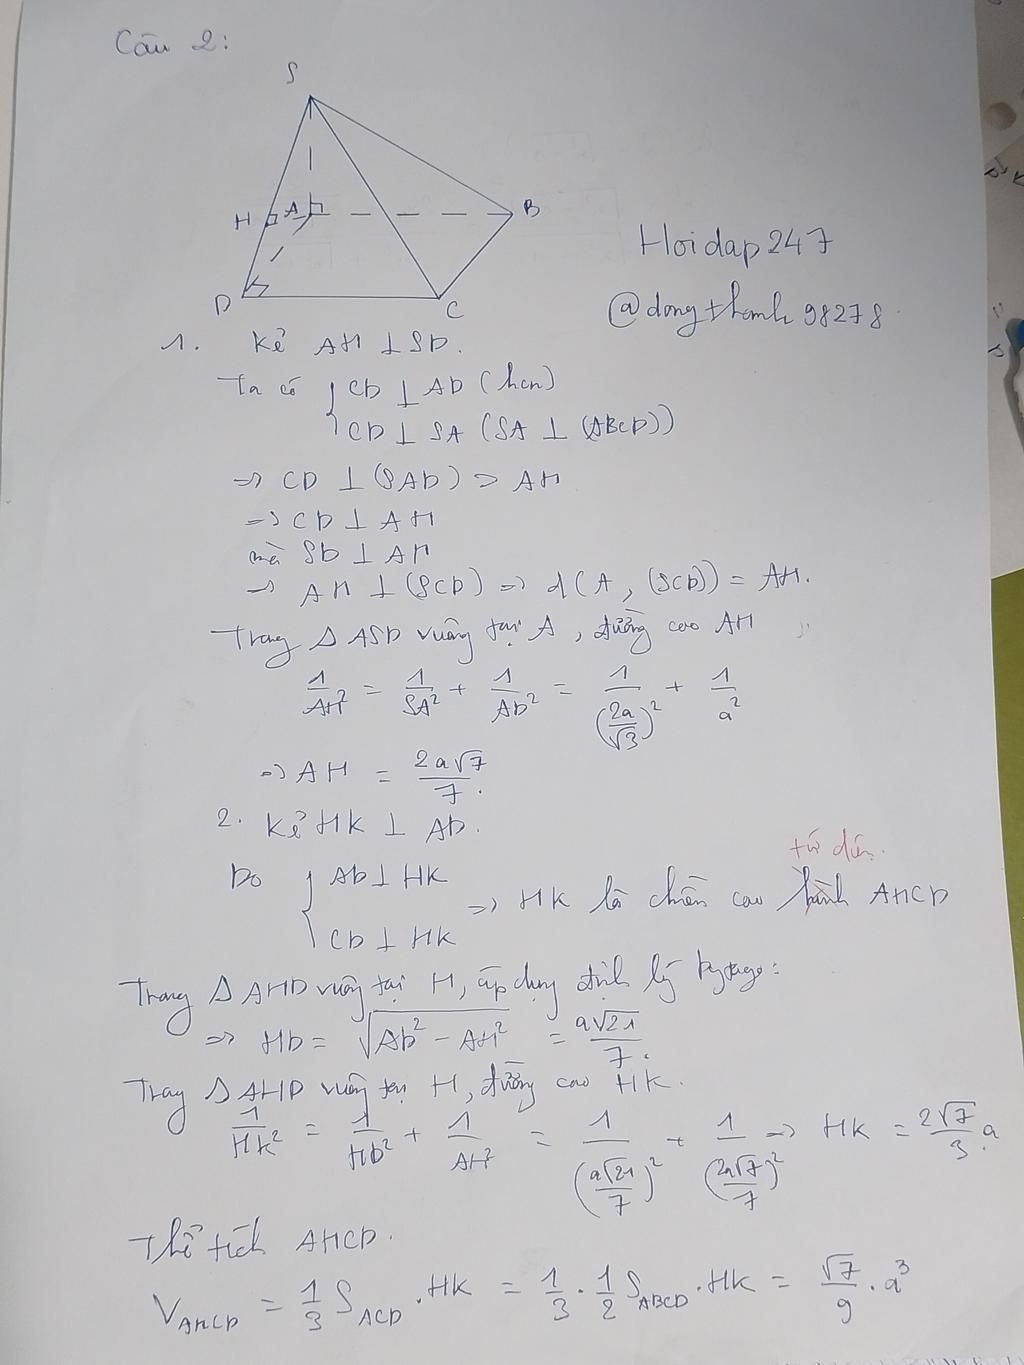 Câu 2:
S
H A B
D C
Hoidap247
@dongthanh98278
1. Kẻ AH ⊥ SD.
Ta có { CD ⊥ AD (hcn)
CD ⊥ SA (SA ⊥ (ABCD))
=> CD ⊥ (SAD) ⊃ AH
=> CD ⊥ AH
mà SD ⊥ AH
=> AH ⊥ (SCD) => d(A, (SCD)) = AH.
Trong Δ ASD vuông tại A, đường cao AH
1/AH² = 1/SA² + 1/AD² = 1/(2a/√3)² + 1/a²
=> AH = 2a√7/7.
2. Kẻ HK ⊥ AD.
Do { AD ⊥ HK
CD ⊥ HK => HK là chiều cao tứ diện AHCD
Trong Δ AHD vuông tại H, áp dụng định lý Pytago:
=> HD = √(AD² - AH²) = a√21/7.
Trong Δ AHD vuông tại H, đường cao HK.
1/HK² = 1/HD² + 1/AH² = 1/(a√21/7)² + 1/(2a√7/7)² => HK = 2√7/3 a.
Thể tích AHCD.
V_AHCD = 1/3 S_ACD . HK = 1/3 . 1/2 S_ABCD . HK = √7/9 . a³